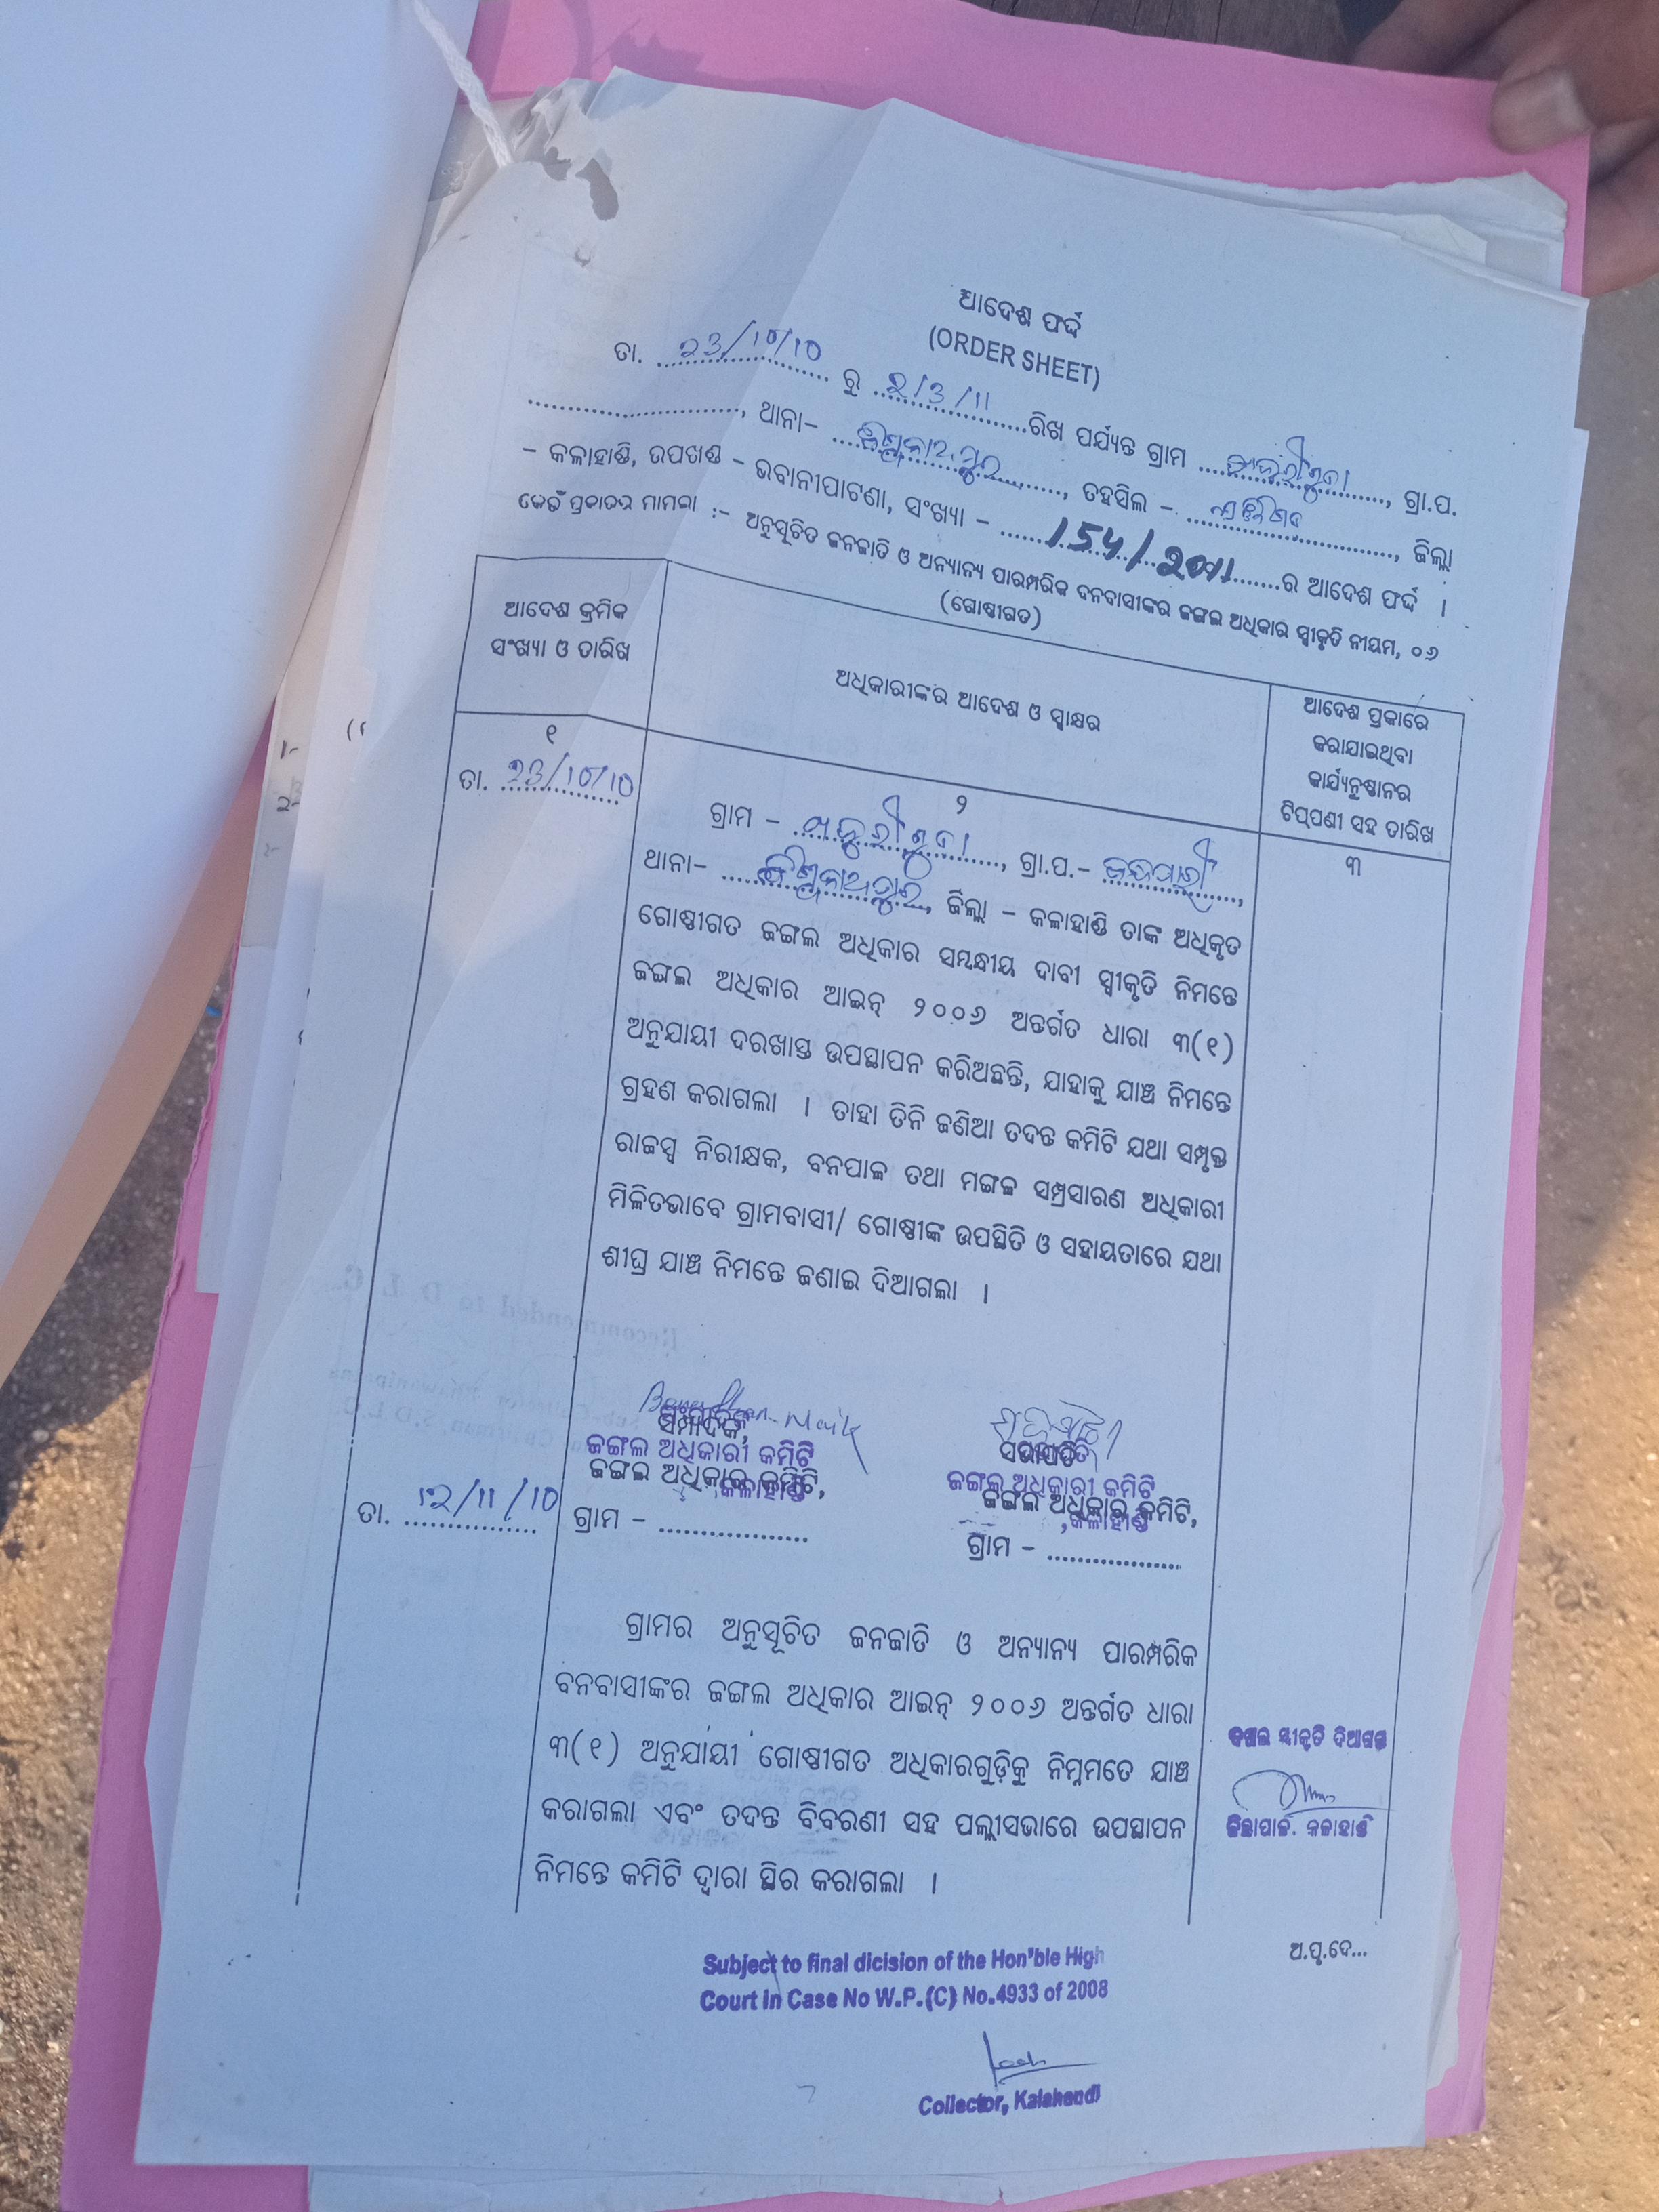 ଆଦେଶ ଫର୍ଦ୍ଦ
(ORDER SHEET)
ତା. 23/10/10 ରୁ 2/3/11 ରିଖ ପର୍ଯ୍ୟନ୍ତ ଗ୍ରାମ ...................., ଗ୍ରା.ପ.
...................., ଥାନା– ବିଶ୍ୱନାଥପୁର, ତହସିଲ – ...................., ଜିଲ୍ଲା
– କଳାହାଣ୍ଡି, ଉପଖଣ୍ଡ – ଭବାନୀପାଟଣା, ସଂଖ୍ୟା – 154/2011 ର ଆଦେଶ ଫର୍ଦ୍ଦ ।
କେଉଁ ପ୍ରକାରର ମାମଲା :– ଅନୁସୂଚିତ ଜନଜାତି ଓ ଅନ୍ୟାନ୍ୟ ପାରମ୍ପରିକ ବନବାସୀଙ୍କର ଜଙ୍ଗଲ ଅଧିକାର ସ୍ୱୀକୃତି ନୀୟମ, ୦୬
(ଗୋଷ୍ଠୀଗତ)
ଆଦେଶ କ୍ରମିକ
ସଂଖ୍ୟା ଓ ତାରିଖ
ଅଧିକାରୀଙ୍କର ଆଦେଶ ଓ ସ୍ୱାକ୍ଷର
ଆଦେଶ ପ୍ରକାରେ
କରାଯାଇଥିବା
କାର୍ଯ୍ୟନୁଷ୍ଠାନର
ଟିପ୍ପଣୀ ସହ ତାରିଖ
୧
୨
୩
ତା. 23/10/10
ଗ୍ରାମ – ...................., ଗ୍ରା.ପ.– ....................,
ଥାନା– ବିଶ୍ୱନାଥପୁର, ଜିଲ୍ଲା – କଳାହାଣ୍ଡି ତାଙ୍କ ଅଧିକୃତ
ଗୋଷ୍ଠୀଗତ ଜଙ୍ଗଲ ଅଧିକାର ସମ୍ବନ୍ଧୀୟ ଦାବୀ ସ୍ୱୀକୃତି ନିମନ୍ତେ
ଜଙ୍ଗଲ ଅଧିକାର ଆଇନ୍ ୨୦୦୬ ଅନ୍ତର୍ଗତ ଧାରା ୩(୧)
ଅନୁଯାୟୀ ଦରଖାସ୍ତ ଉପସ୍ଥାପନ କରିଅଛନ୍ତି, ଯାହାକୁ ଯାଞ୍ଚ ନିମନ୍ତେ
ଗ୍ରହଣ କରାଗଲା । ତାହା ତିନି ଜଣିଆ ତଦନ୍ତ କମିଟି ଯଥା ସମ୍ପୃକ୍ତ
ରାଜସ୍ୱ ନିରୀକ୍ଷକ, ବନପାଳ ତଥା ମଙ୍ଗଳ ସମ୍ପ୍ରସାରଣ ଅଧିକାରୀ
ମିଳିତଭାବେ ଗ୍ରାମବାସୀ/ ଗୋଷ୍ଠୀଙ୍କ ଉପସ୍ଥିତି ଓ ସହାୟତାରେ ଯଥା
ଶୀଘ୍ର ଯାଞ୍ଚ ନିମନ୍ତେ ଜଣାଇ ଦିଆଗଲା ।
ସମ୍ପାଦକ,
ଜଙ୍ଗଲ ଅଧିକାରୀ କମିଟି
ଜଙ୍ଗଲ ଅଧିକାର କମିଟି,
କଳାହାଣ୍ଡି
ଗ୍ରାମ – ..................
ସଭାପତି
ଜଙ୍ଗଲ ଅଧିକାରୀ କମିଟି
ଜଙ୍ଗଲ ଅଧିକାର କମିଟି,
,କଳାହାଣ୍ଡି
ଗ୍ରାମ – ..................
ତା. 12/11/10
ଗ୍ରାମର ଅନୁସୂଚିତ ଜନଜାତି ଓ ଅନ୍ୟାନ୍ୟ ପାରମ୍ପରିକ
ବନବାସୀଙ୍କର ଜଙ୍ଗଲ ଅଧିକାର ଆଇନ୍ ୨୦୦୬ ଅନ୍ତର୍ଗତ ଧାରା
୩(୧) ଅନୁଯାୟୀ ଗୋଷ୍ଠୀଗତ ଅଧିକାରଗୁଡ଼ିକୁ ନିମ୍ନମତେ ଯାଞ୍ଚ
କରାଗଲା ଏବଂ ତଦନ୍ତ ବିବରଣୀ ସହ ପଲ୍ଲୀସଭାରେ ଉପସ୍ଥାପନ
ନିମନ୍ତେ କମିଟି ଦ୍ୱାରା ସ୍ଥିର କରାଗଲା ।
ସ୍ୱୀକୃତି ଦିଆଗଲା
ଜିଲ୍ଲାପାଳ. କଳାହାଣ୍ଡି
ଅ.ପୃ.ଦେ...
Subject to final dicision of the Hon'ble High
Court in Case No W.P.(C) No.4933 of 2008
Collector, Kalahandi